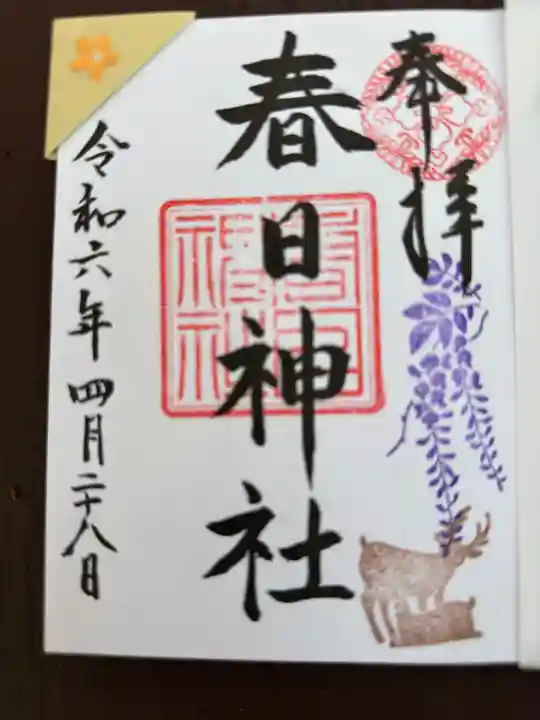 奉拝
春日神社
令和六年四月二十八日